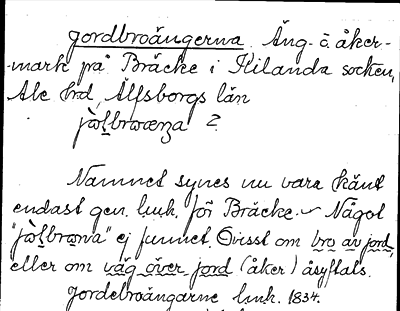 Jordbroängerna. Äng- o. åker-
-mark på Bräcke i Kilanda socken,
Ale hrd, Älfsborgs län
2
Namnet synes nu vara känt
endast gen. lmk. för Bräcke. Något
ej funnet. Ovisst om bro av jord,
eller om väg över jord (åker) åsyftals.
Jordebroängarne lmk. 1834.